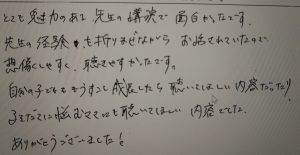 とても魅力のある先生の講演で面白かったです。
先生の経験も折りまぜながらお話されていたので
想像しやすく、聴きやすかったです。
自分の子どもももう少し成長したら聴いてほしい内容だったり
子育てに悩むママにも聴いてほしい内容でした。
ありがとうございました!